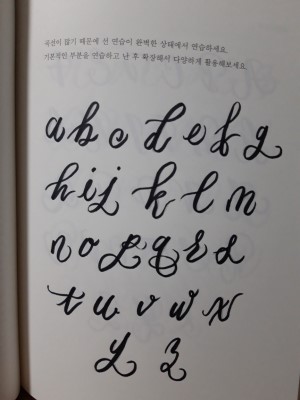 곡선이 많기 때문에 선 연습이 완벽한 상태에서 연습하세요.
기본적인 부분을 연습하고 난 후 확장해서 다양하게 활용해보세요.
a b c d e f g
h i j k l m
n o p q r s
t u v w x
y z